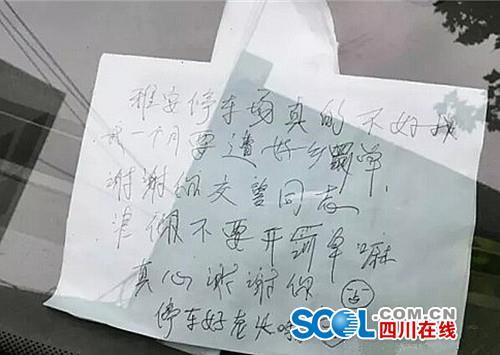 雅安停车场真的不好找
我一个月要遭好多罚单
谢谢你交警同志
求你不要开罚单嘛
真心谢谢你
停车好老火呀
SCOL.COM.CN
四川在线